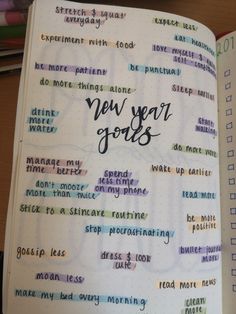 stretch & squat
everyday
expect less
experiment with food
eat healthier
love myself & more
self confident
be more patient
be punctual
do more things alone
sleep earlier
new year
goals
drink
more
water
start
walking
do more work
manage my
time better
spend
less time
on my phone
wake up earlier
don't snooze
more than twice
read more
stick to a skincare routine
be more
positive
stop procrastinating
gossip less
dress & look
cute
bullet journal
more
moan less
read more news
make my bed every morning
clean
more
201